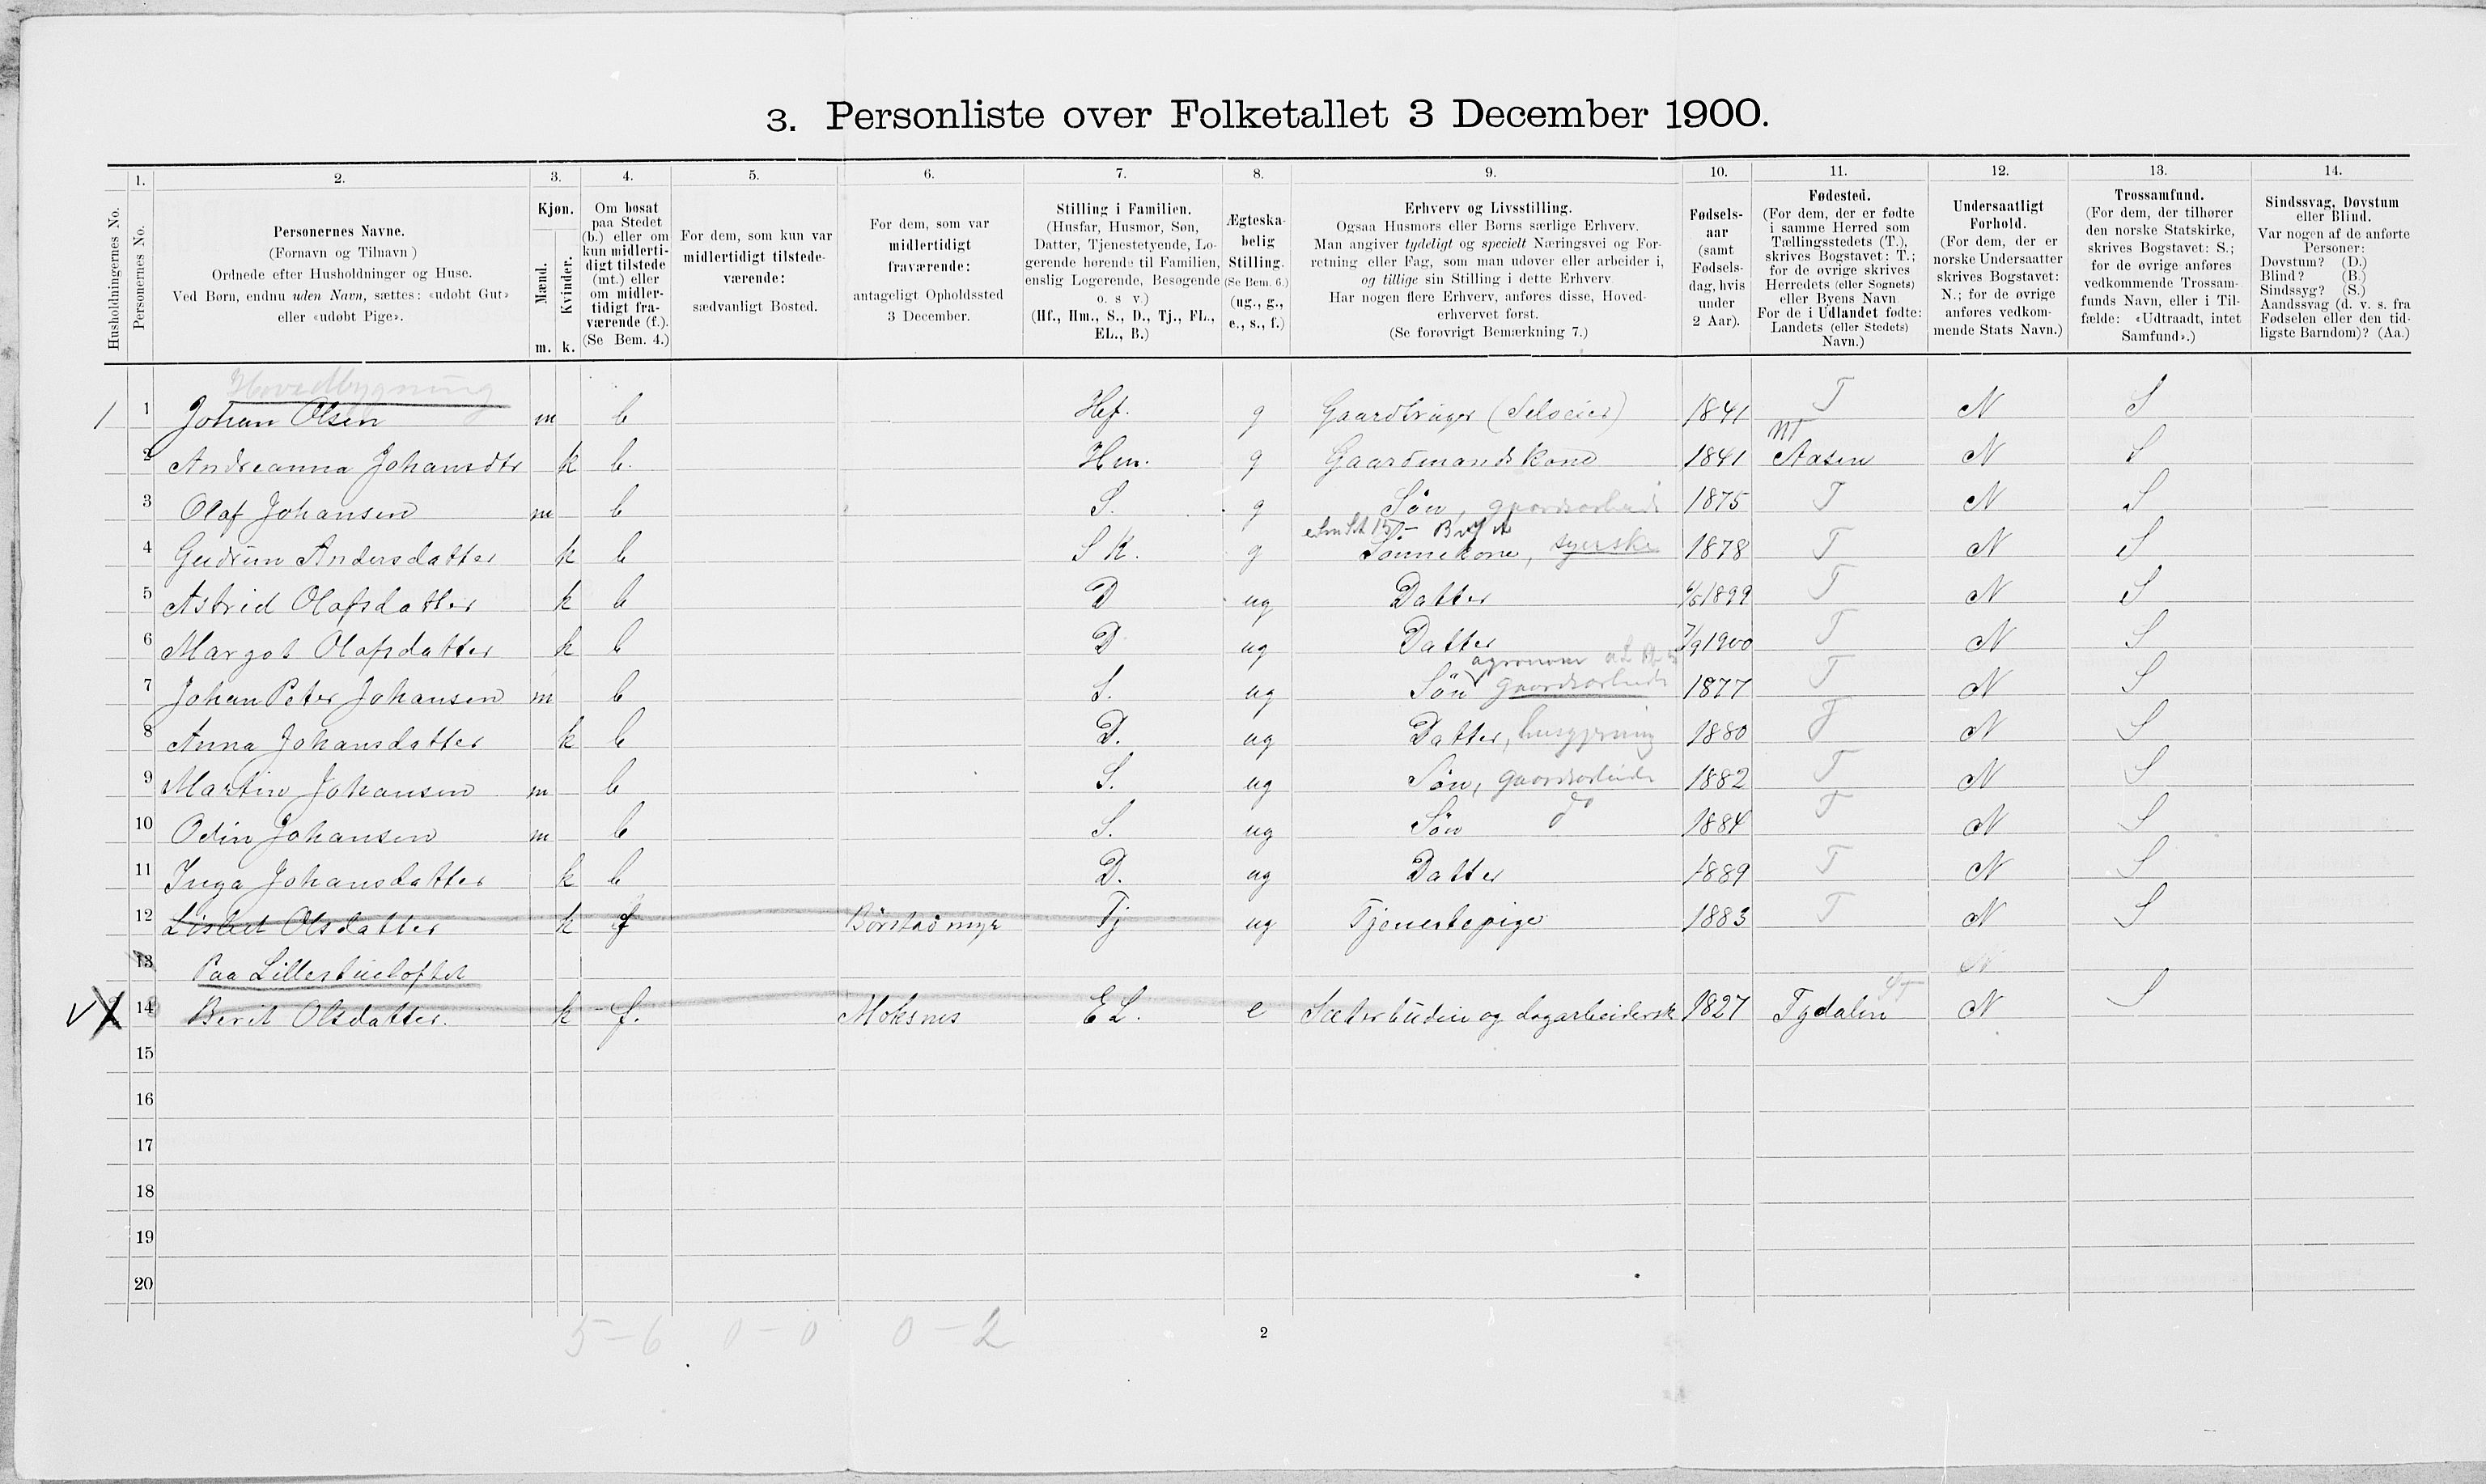 3. Personliste over Folketallet 3 December 1900.
1. 2. 3. 4. 5. 6. 7. 8. 9. 10. 11. 12. 13. 14.
Husholdningernes No.
Personernes No.
Personernes Navne.
(Fornavn og Tilnavn)
Ordnede efter Husholdninger og Huse.
Ved Børn, endnu uden Navn, sættes: «udøbt Gut»
eller «udøbt Pige».
Kjøn.
Mænd.
Kvinder.
m. k.
Om bosat
paa Stedet
(b.) eller om
kun midlerti-
digt tilstede
(mt.) eller
om midler-
tidigt fra-
værende (f.).
(Se Bem. 4.)
For dem, som kun var
midlertidigt tilstede-
værende:
sædvanligt Bosted.
For dem, som var
midlertidigt
fraværende:
antageligt Opholdssted
3 December.
Stilling i Familien.
(Husfar, Husmor, Søn,
Datter, Tjenestetyende, Lo-
gerende hørende til Familien,
enslig Logerende, Besøgende
o. s. v.)
(Hf., Hm., S., D., Tj., FL.,
EL., B.)
Ægteska-
belig
Stilling.
(Se Bem. 6.)
(ug., g.,
e., s., f.)
Erhverv og Livsstilling.
Ogsaa Husmors eller Børns særlige Erhverv.
Man angiver tydeligt og specielt Næringsvei og For-
retning eller Fag, som man udøver eller arbeider i,
og tillige sin Stilling i dette Erhverv.
Har nogen flere Erhverv, anføres disse, Hoved-
erhvervet først.
(Se forøvrigt Bemærkning 7.)
Fødsels-
aar
(samt
Fødsels-
dag, hvis
under
2 Aar).
Fødested.
(For dem, der er fødte
i samme Herred som
Tællingsstedets (T.),
skrives Bogstavet: T.;
for de øvrige skrives
Herredets (eller Sognets)
eller Byens Navn
For de i Udlandet fødte:
Landets (eller Stedets)
Navn.)
Undersaatligt
Forhold.
(For dem, der er
norske Undersaatter
skrives Bogstavet:
N.; for de øvrige
anføres vedkom-
mende Stats Navn.)
Trossamfund.
(For dem, der tilhører
den norske Statskirke,
skrives Bogstavet: S.;
for de øvrige anføres
vedkommende Trossam-
funds Navn, eller i Til-
fælde: «Udtraadt, intet
Samfund».)
Sindssvag, Døvstum
eller Blind.
Var nogen af de anførte
Personer:
Døvstum? (D.)
Blind? (B.)
Sindssyg? (S.)
Aandssvag (d. v. s. fra
Fødselen eller den tid-
ligste Barndom)? (Aa.)
Hovedbygning
1 1 Johan Olsen m b Hf. g Gaardbruger (Selveier) 1841 T N S
NT
2 Andreanna Johansdtr k b. Hm. g Gaardmandskone 1841 Aasen N S
3 Olaf Johansen m b S. g Søn, gaardsarbeide 1875 T N S
4 Gudrun Andersdatter k b S K. g Sønnekone, syerske 1878 T N S
5 Astrid Olafsdatter k b D ug Datter 6/5 1899 T N S
6 Margot Olafsdatter k b D ug Datter 7/9 1900 T N S
agronom
7 Johan Peter Johansen m b S. ug Søn gaardsarbeide 1877 T N S
8 Anna Johansdatter k b D. ug Datter, husgjerning 1880 T N S
9 Martin Johansen m b S. ug Søn, gaardsarbeide 1882 T N S
10 Odin Johansen m b S. ug Søn do 1884 T N S
11 Inga Johansdatter k b D. ug Datter 1889 T N S
12 Lisbet Olsdatter k f Børstadmyr Tj ug Tjenestepige 1883 T N S
13 Paa Lillestueloftet N
14 Berit Olsdatter. k f. Moksnes E L. e Sæterbudeie og dagarbeidersk 1827 Tydalen N S
15
16
17
18
19
20
5 - 6 0 - 0 0 - 2
2